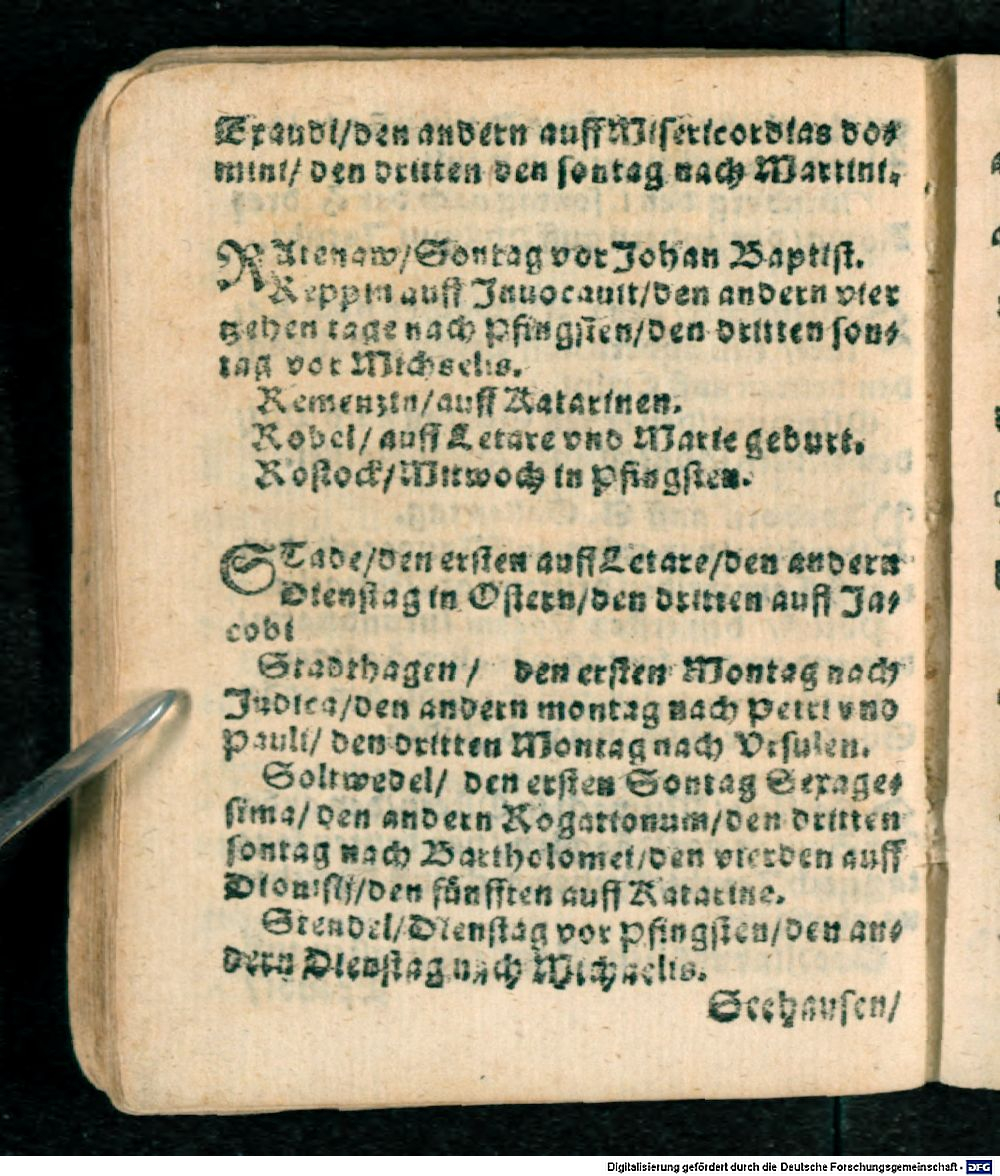 Exaudi/den andern auff Misericordias do⸗
mini/ den dritten den sontag nach Martini.
RAtenaw/Sontag vor Johan Baptist.
Reppin auff Inuocauit/den andern vier
tzehen tage nach Pfingsten/den dritten son⸗
tag vor Michaelis.
Remenzin/auff Katarinen.
Robel/ auff Letare vnd Marie geburt.
Rostock/Mitwoch in Pfingsten.
STade/den ersten auff Letare/den andern
Dienstag in Ostern/den dritten auff Ja⸗
cobi
Stadthagen/ den ersten Montag nach
Judica/den andern montag nach Petri vnd
Pauli/ den dritten Montag nach Vrsulen.
Soltwedel/ den ersten Sontag Sexage⸗
sima/ den andern Rogationum/den dritten
sontag nach Bartholomei/den vierden auff
Dionisij/den fünfften auff Katarine.
Stendel/Dienstag vor Pfingsten/den an⸗
dern Dienstag nach Michaelis.
Seehausen/
Digitalisierung gefördert durch die Deutsche Forschungsgemeinschaft - DFG